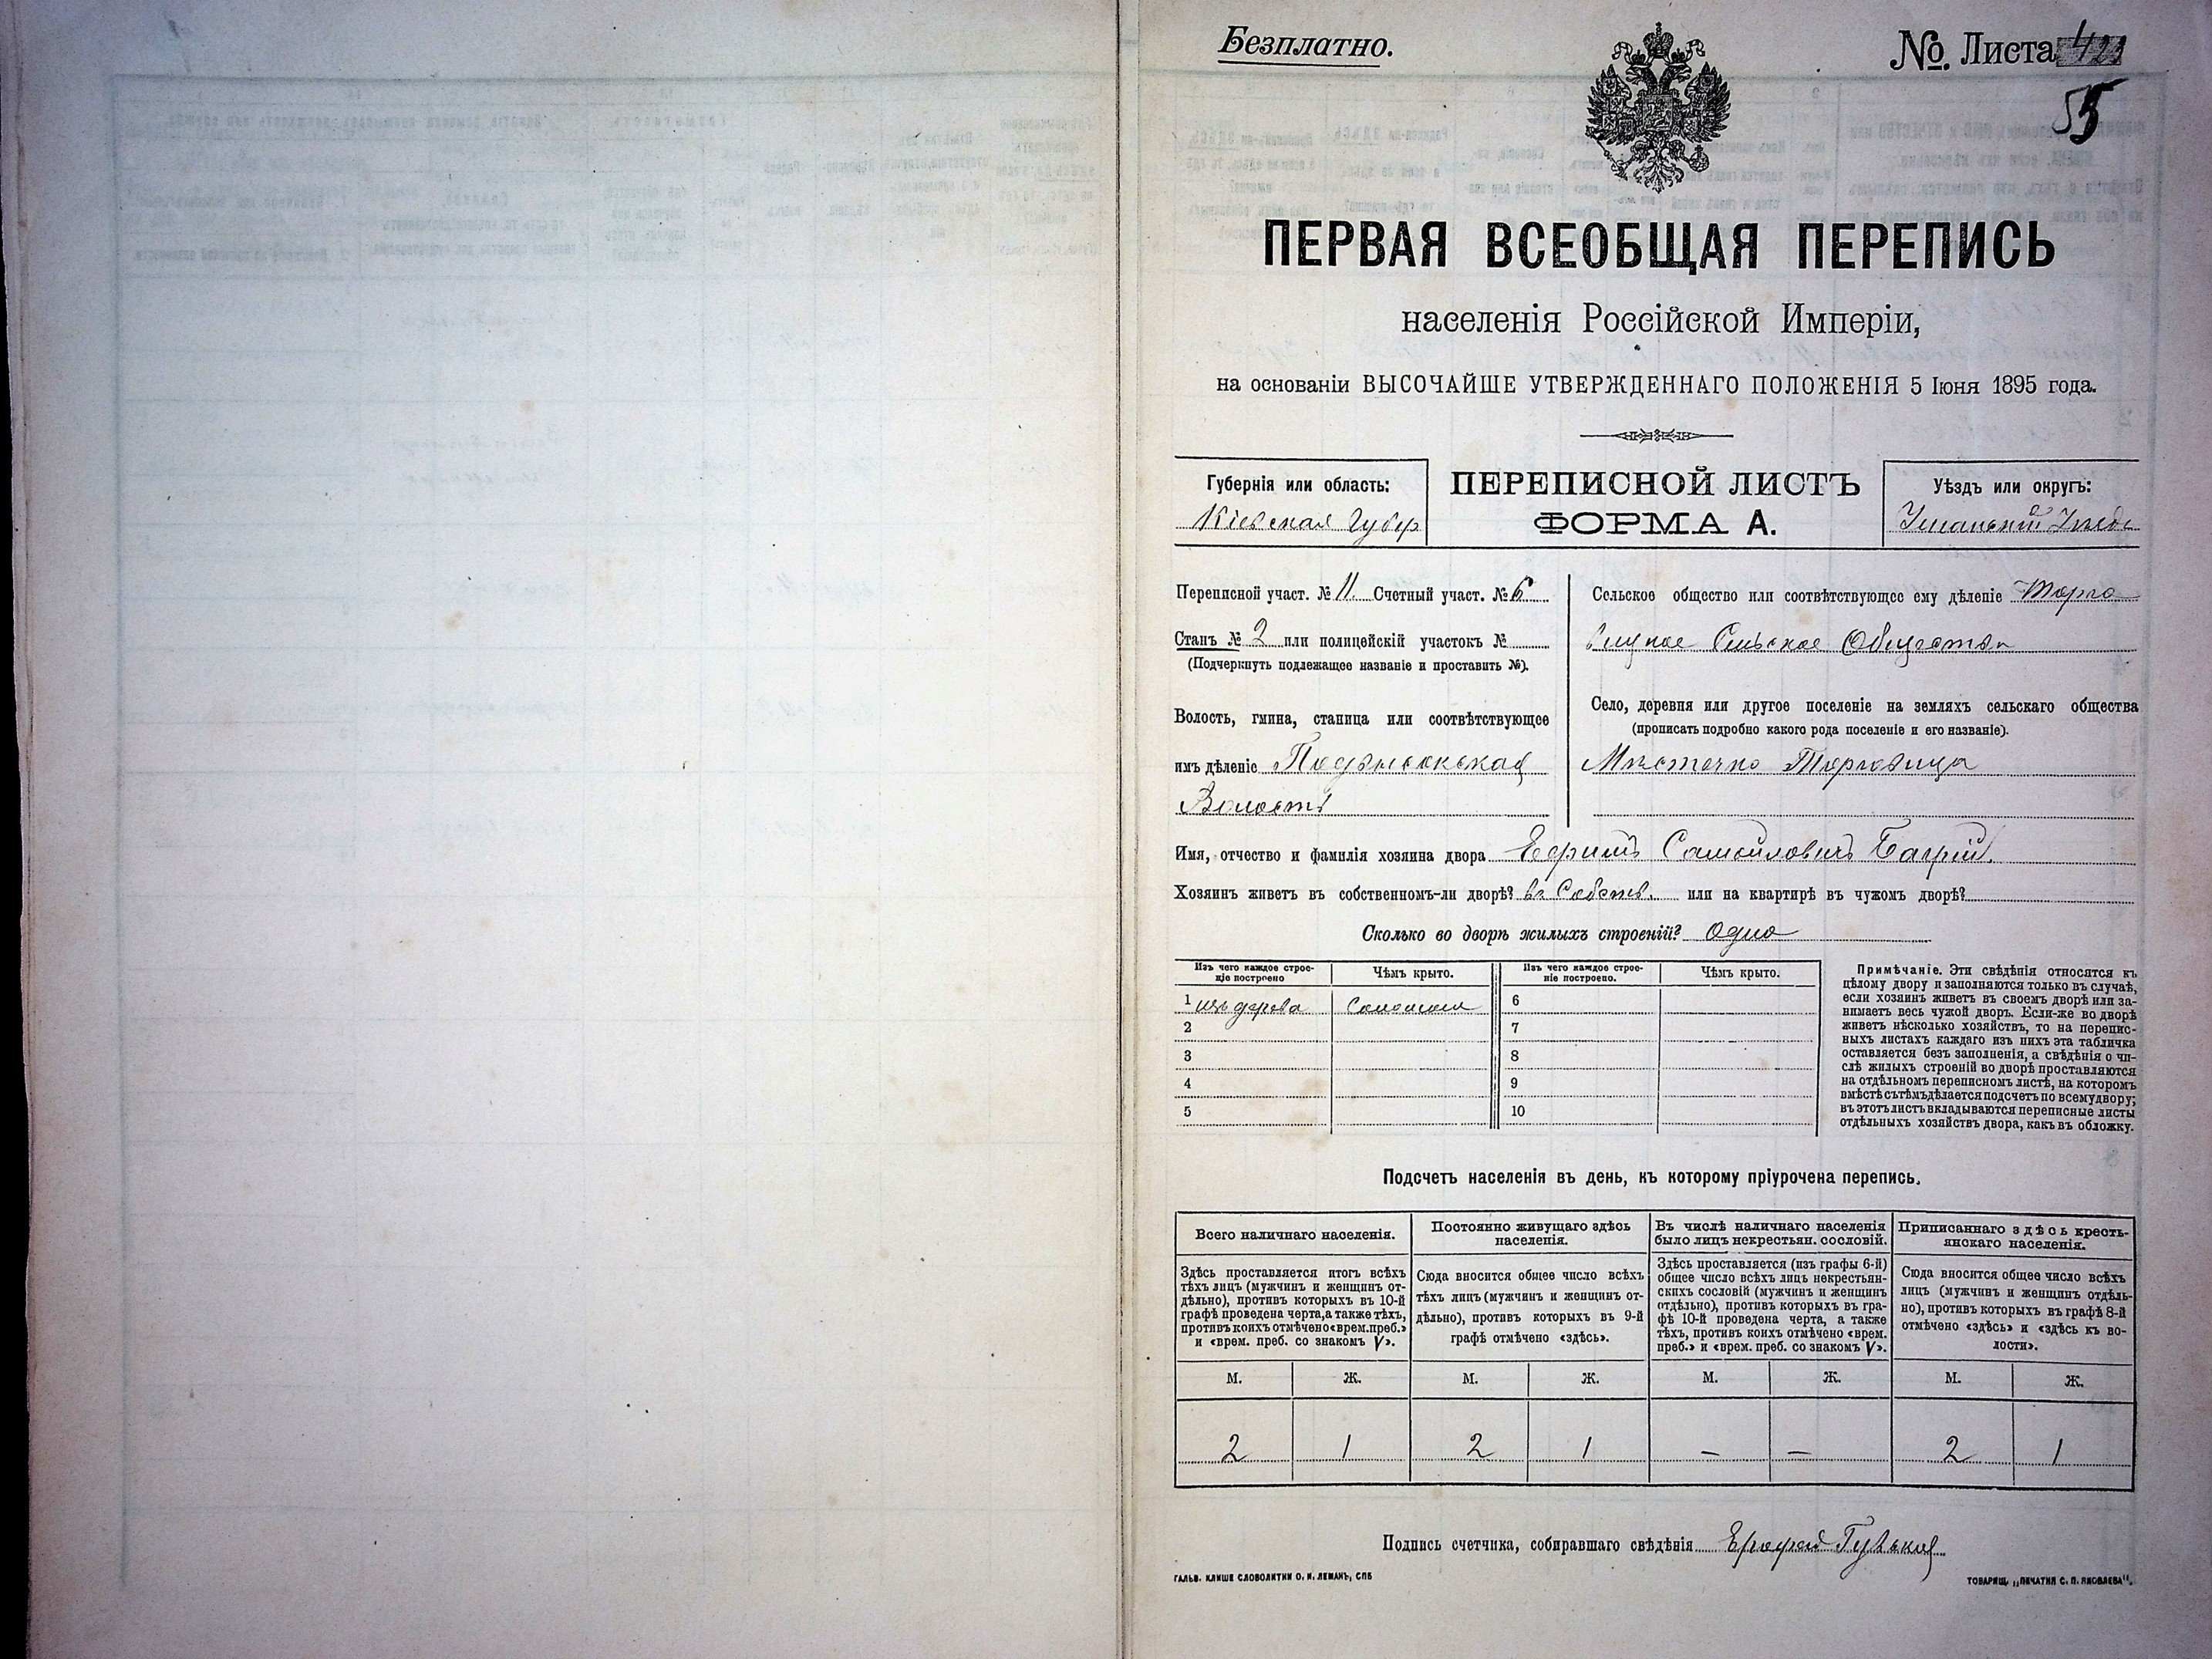 Безплатно.
№ Листа
55
ПЕРВАЯ ВСЕОБЩАЯ ПЕРЕПИСЬ
населенія Россійской Имперіи,
на основаніи ВЫСОЧАЙШЕ УТВЕРЖДЕННАГО ПОЛОЖЕНІЯ 5 Іюня 1895 года.
Губернія или область:
Кіевская Губер
ПЕРЕПИСНОЙ ЛИСТЪ
ФОРМА А.
Уѣздъ или округъ:
Уманский Уездъ
Переписной участ. № 11. Счетный участ. № 6
Станъ № 2 или полицейскій участокъ №
(Подчеркнуть подлежащее названіе и проставить №).
Волость, гмина, станица или соотвѣтствующее
имъ дѣленіе Подвысокская
Волость
Сельское общество или соотвѣтствующее ему дѣленіе Торго
вицкое Сельское Общество
Село, деревня или другое поселеніе на земляхъ сельскаго общества
(прописать подробно какого рода поселеніе и его названіе).
Мѣстечко Торговица
Имя, отчество и фамилія хозяина двора Ефимъ Самойловичъ Багрій.
Хозяинъ живетъ въ собственномъ-ли дворѣ? въ Собств. или на квартирѣ въ чужомъ дворѣ?
Сколько во дворѣ жилыхъ строеній? Одно
Изъ чего каждое строе-
ніе построено
Чѣмъ крыто.
Изъ чего каждое строе-
ніе построено.
Чѣмъ крыто.
1 изъ дерева Соломою 6
2 7
3 8
4 9
5 10
Примѣчаніе. Эти свѣдѣнія относятся къ
цѣлому двору и заполняются только въ случаѣ,
если хозяинъ живетъ въ своемъ дворѣ или за-
нимаетъ весь чужой дворъ. Если-же во дворѣ
живетъ нѣсколько хозяйствъ, то на перепис-
ныхъ листахъ каждаго изъ нихъ эта табличка
оставляется безъ заполненія, а свѣдѣнія о чи-
слѣ жилыхъ строеній во дворѣ проставляются
на отдѣльномъ переписномъ листѣ, на которомъ
вмѣстѣ съ тѣмъ дѣлается подсчетъ по всему двору;
въ этотъ листъ вкладываются переписные листы
отдѣльныхъ хозяйствъ двора, какъ въ обложку.
Подсчетъ населенія въ день, къ которому пріурочена перепись.
Всего наличнаго населенія.
Здѣсь проставляется итогъ всѣхъ
тѣхъ лицъ (мужчинъ и женщинъ от-
дѣльно), противъ которыхъ въ 10-й
графѣ проведена черта, а также тѣхъ,
противъ коихъ отмѣчено «врем. преб.»
и «врем. преб. со знакомъ V».
Постоянно живущаго здѣсь
населенія.
Сюда вносится общее число всѣхъ
тѣхъ лицъ (мужчинъ и женщинъ от-
дѣльно), противъ которыхъ въ 9-й
графѣ отмѣчено «здѣсь».
Въ числѣ наличнаго населенія
было лицъ некрестьян. сословій.
Здѣсь проставляется (изъ графы 6-й)
общее число всѣхъ лицъ некрестьян-
скихъ сословій (мужчинъ и женщинъ
отдѣльно), противъ которыхъ въ гра-
фѣ 10-й проведена черта, а также
тѣхъ, противъ коихъ отмѣчено «врем.
преб.» и «врем. преб. со знакомъ V».
Приписаннаго здѣсь кресть-
янскаго населенія.
Сюда вносится общее число всѣхъ
лицъ (мужчинъ и женщинъ отдѣль-
но), противъ которыхъ въ графѣ 8-й
отмѣчено «здѣсь» и «здѣсь къ во-
лости».
М. Ж. М. Ж. М. Ж. М. Ж.
2 1 2 1 — — 2 1
Подпись счетчика, собиравшаго свѣдѣнія Ерофей
ГАЛЬВ. КЛИШЕ СЛОВОЛИТНИ О. И. ЛЕМАНЪ, СПБ
ТОВАРИЩ. „ПЕЧАТНЯ С. П. ЯКОВЛЕВА".